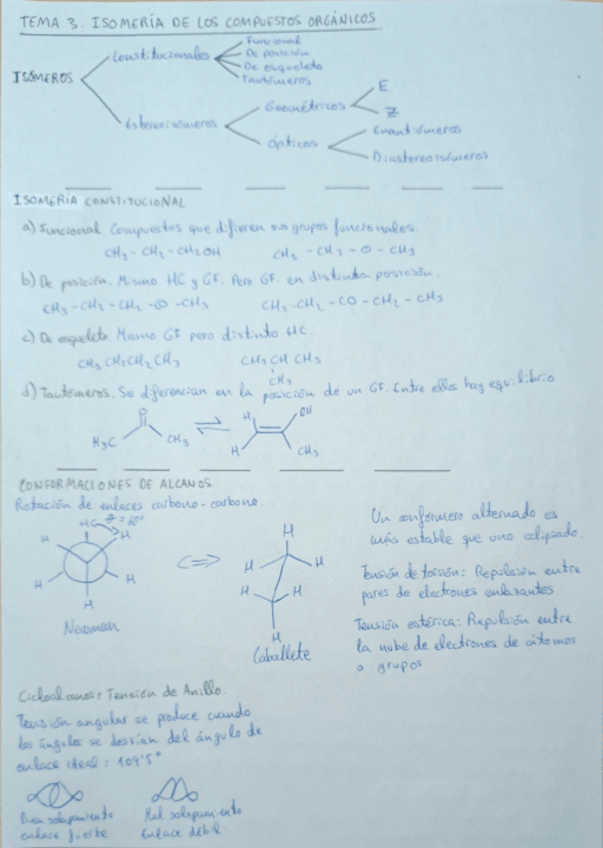 TEMA 3. ISOMERÍA DE LOS COMPUESTOS ORGÁNICOS
ISÓMEROS
Constitucionales
Funcional
De posición
De esqueleto
Tautómeros
Estereoisómeros
Geométricos
E
Z
Ópticos
Enantiómeros
Diastereoisómeros
ISOMERÍA CONSTITUCIONAL
a) Funcional. Compuestos que difieren sus grupos funcionales.
CH3 - CH2 - CH2OH CH3 - CH2 - O - CH3
b) De posición. Mismo HC y GF. Pero GF. en distinta posición.
CH3 - CH2 - CH2 - CO - CH3 CH3 - CH2 - CO - CH2 - CH3
c) De esqueleto. Mismo GF pero distinto HC.
CH3 CH2 CH2 CH3 CH3 CH CH3
CH3
d) Tautómeros. Se diferencian en la posición de un GF. Entre ellos hay equilibrio
O
H3C CH3
H OH
H CH3
CONFORMACIONES DE ALCANOS.
Rotación de enlaces carbono-carbono.
θ = 60º
H H
H H
H H
Newman
H
H H
H H
H
Caballete
Un confórmero alternado es
más estable que uno eclipsado.
Tensión de torsión: Repulsión entre
pares de electrones enlazantes
Tensión estérica: Repulsión entre
la nube de electrones de átomos
o grupos
Cicloalcanos: Tensión de Anillo.
Tensión angular se produce cuando
los ángulos se desvían del ángulo de
enlace ideal: 109'5º
Buen solapamiento
enlace fuerte
Mal solapamiento
Enlace débil